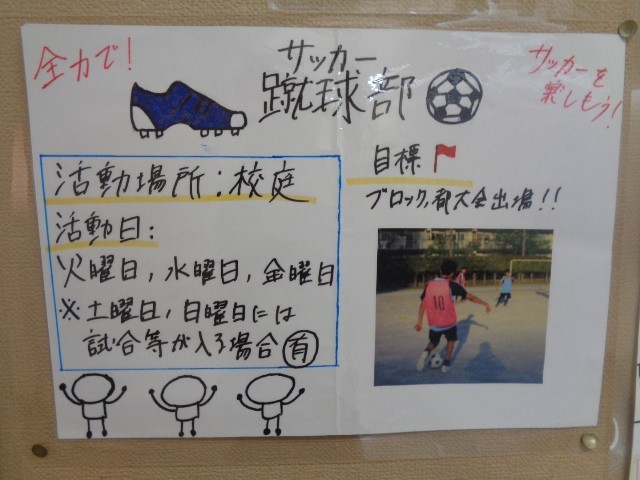 全力で!
サッカー
蹴球部
サッカーを
楽しもう!
活動場所:校庭
活動日:
火曜日,水曜日,金曜日
※土曜日,日曜日には
試合等が入る場合有
目標
ブロック,都大会出場!!
10